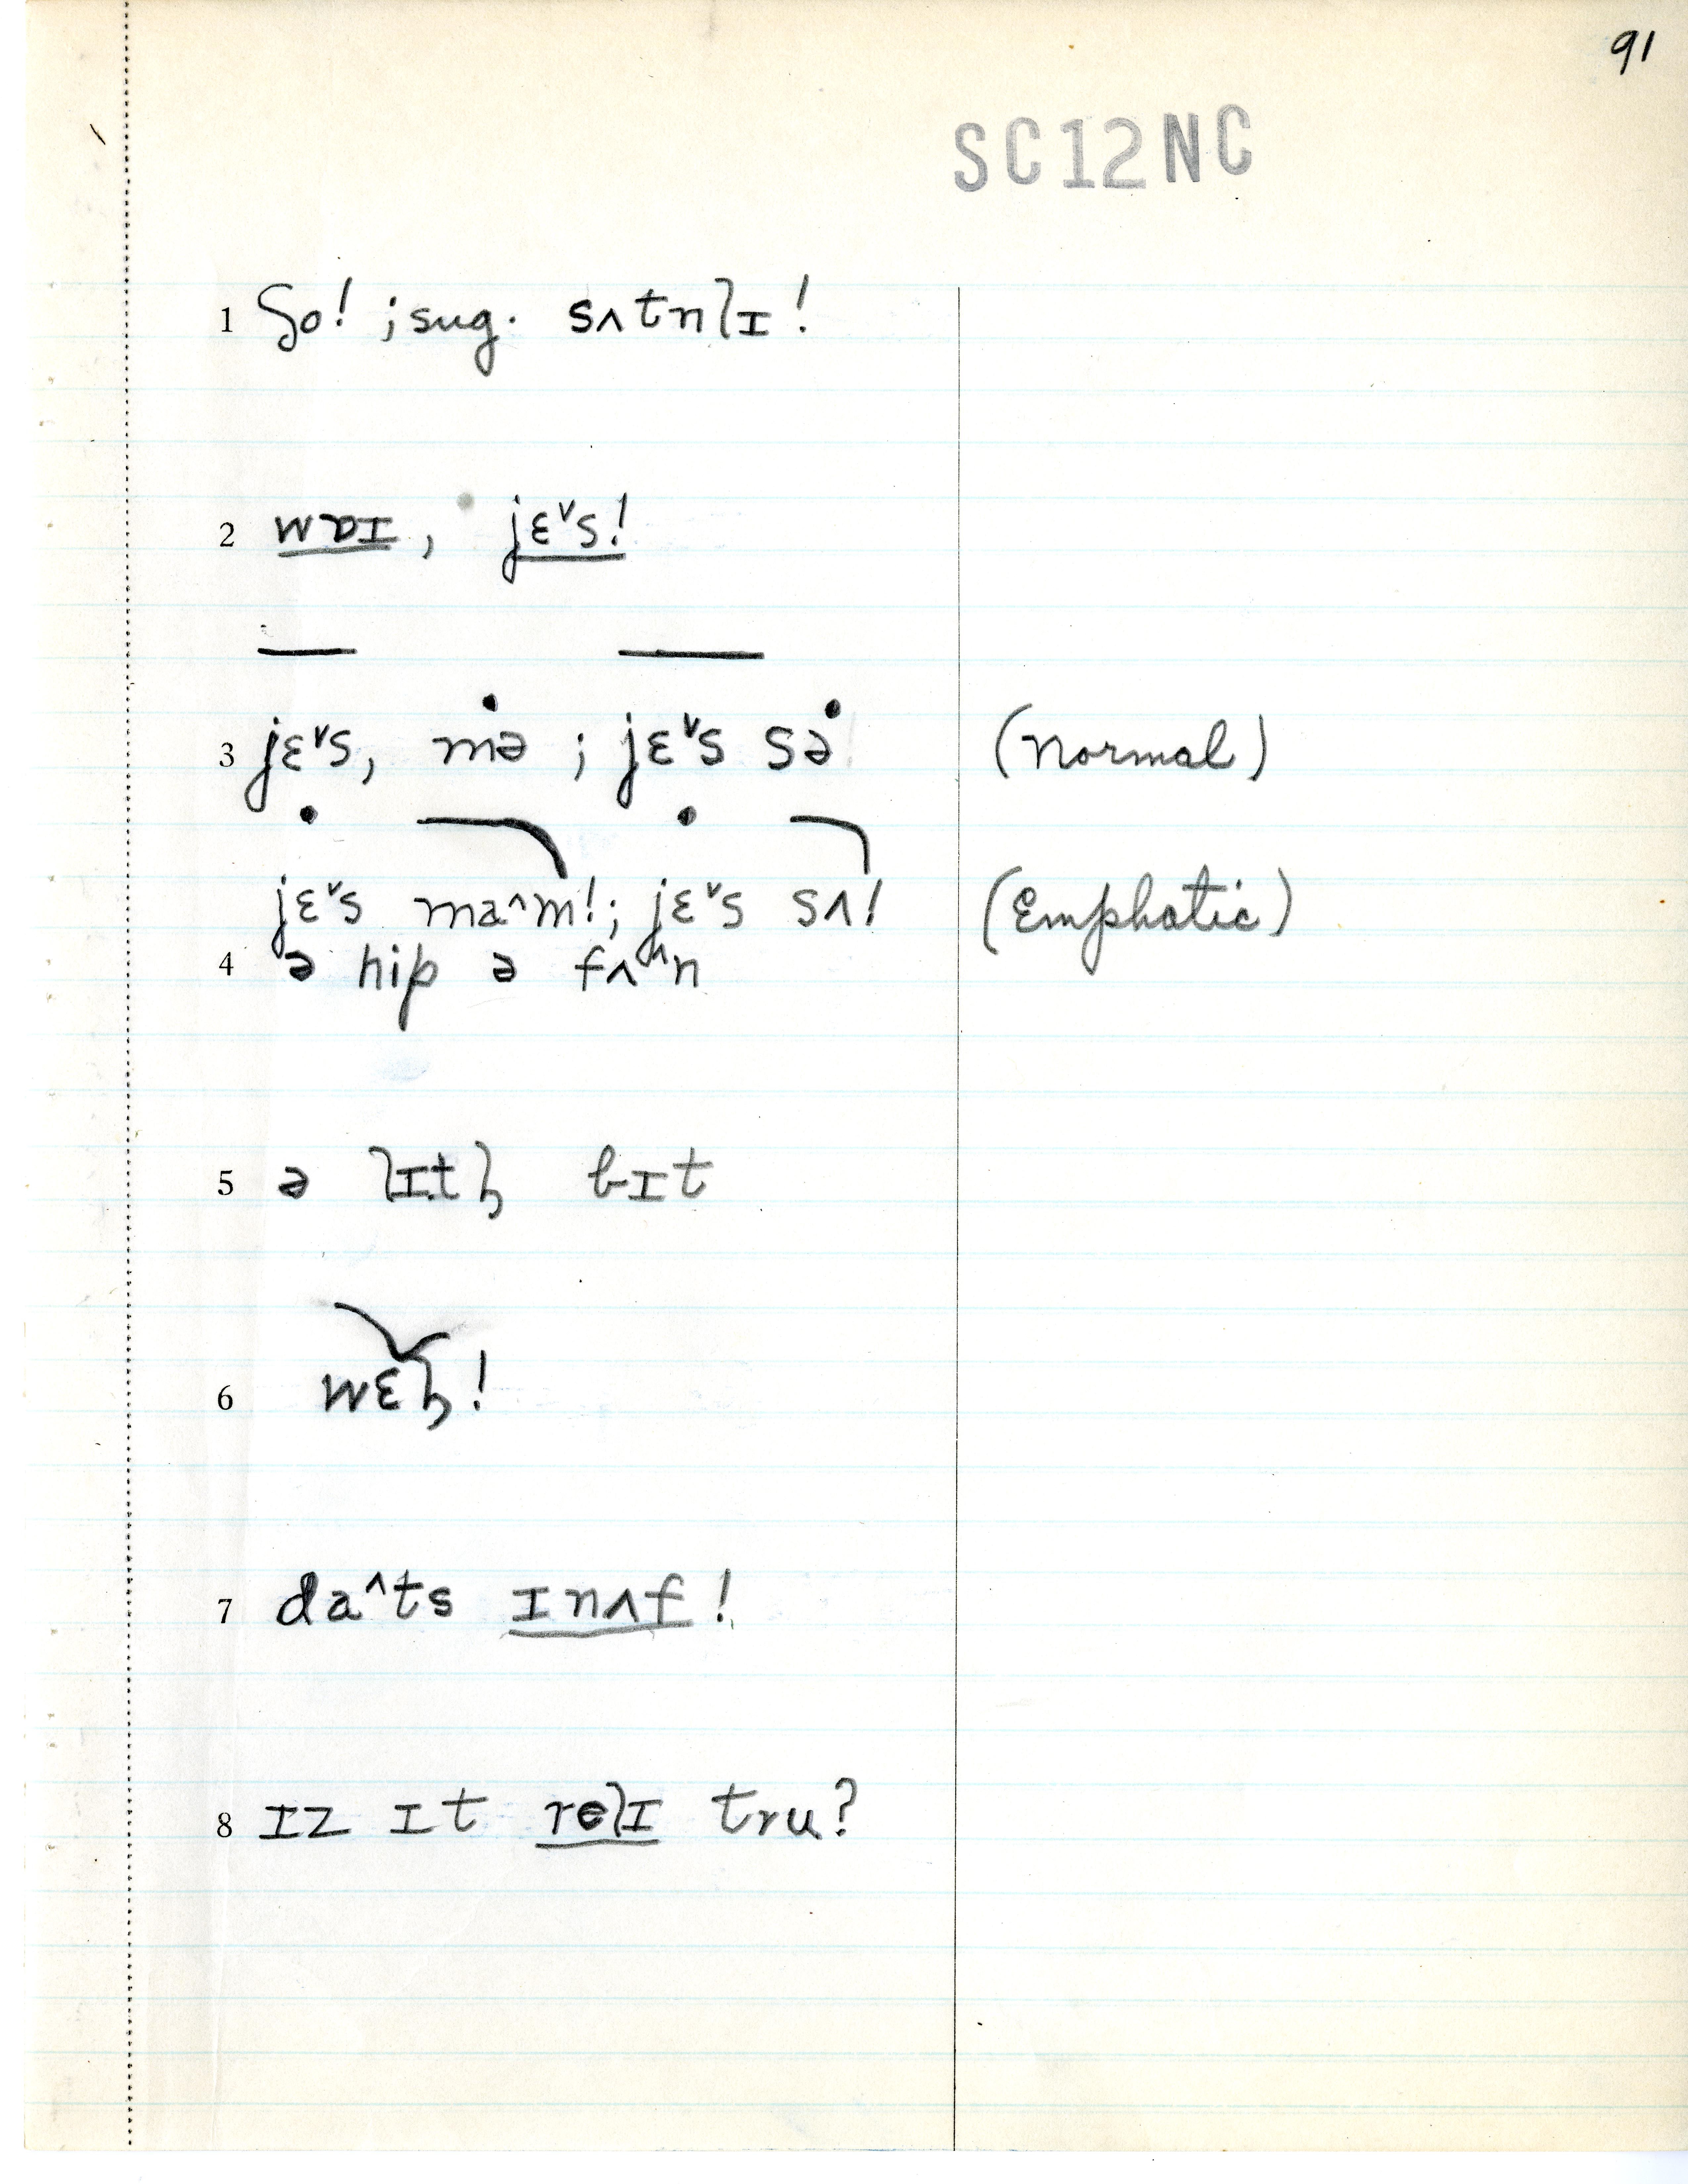 91
SC12NC
1 ʃo! ; sug. sʌtnlɪ!
2 wɒɪ, jɛ˅s!
3 jɛ˅s, mə ; jɛ˅s sə (normal)
jɛ˅s ma^m!; jɛ˅s sʌ! (Emphatic)
4 ə hip ə fʌⁿn
5 ə lɪtl̩ bɪt
6 wɛl̩!
7 da^ts ɪnʌf!
8 ɪz ɪt relɪ tru?